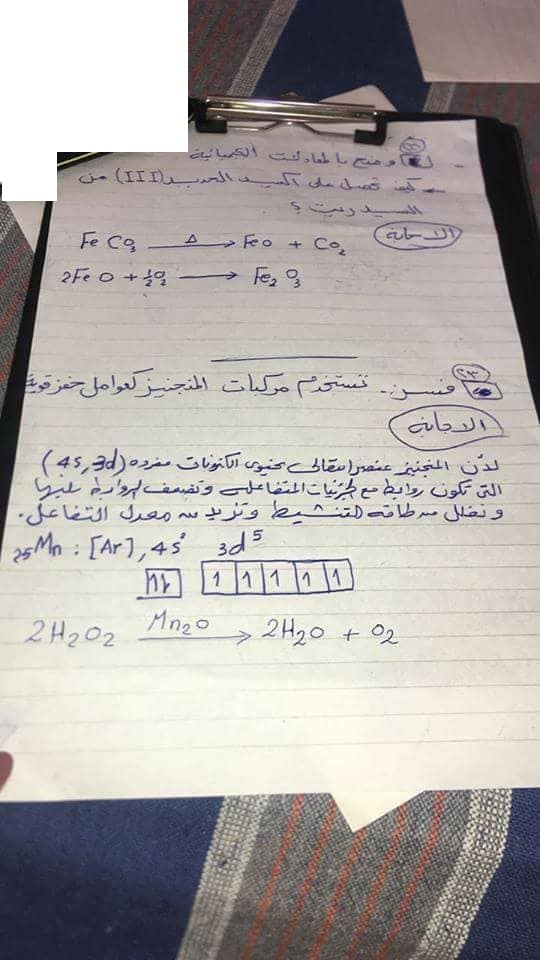 وضح بالمعادلات الكيميائية
كيف تحصل على أكسيد الحديد (III) من
السيدريت ؟
الاجابة
Fe CO3 —Δ→ FeO + CO2
2Fe O + ½O2 → Fe2 O3
٢٣
فسر .. تستخدم مركبات المنجنيز كعوامل حفز قوية
الاجابة
لأن المنجنيز عنصر انتقالى يحتوى الكترونات مفرده (4s, 3d)
التى تكون روابط مع جزئيات المتفاعلات وتضعف الروابط بينها
وتقلل من طاقه التنشيط وتزيد من معدل التفاعل.
25Mn : [Ar], 4s² 3d⁵
1⇂ 1 1 1 1 1
2H2O2 —Mn2O→ 2H2O + O2